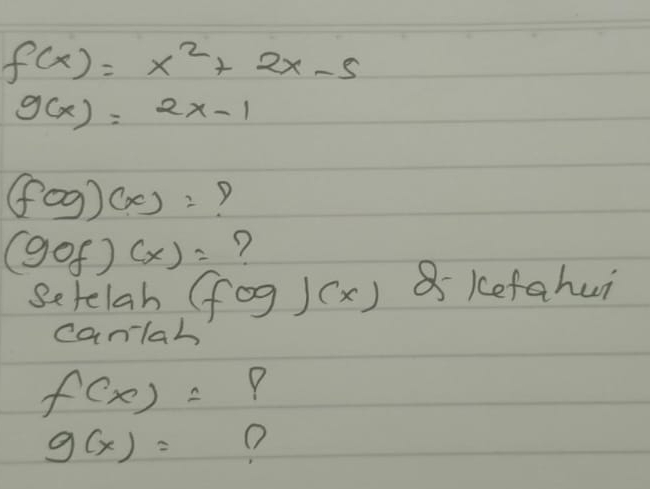 f(x) = x² + 2x - 5
g(x) = 2x - 1
(fog)(x) = ?
(gof)(x) = ?
Setelah (fog)(x) di ketahui
carilah
f(x) = ?
g(x) = ?